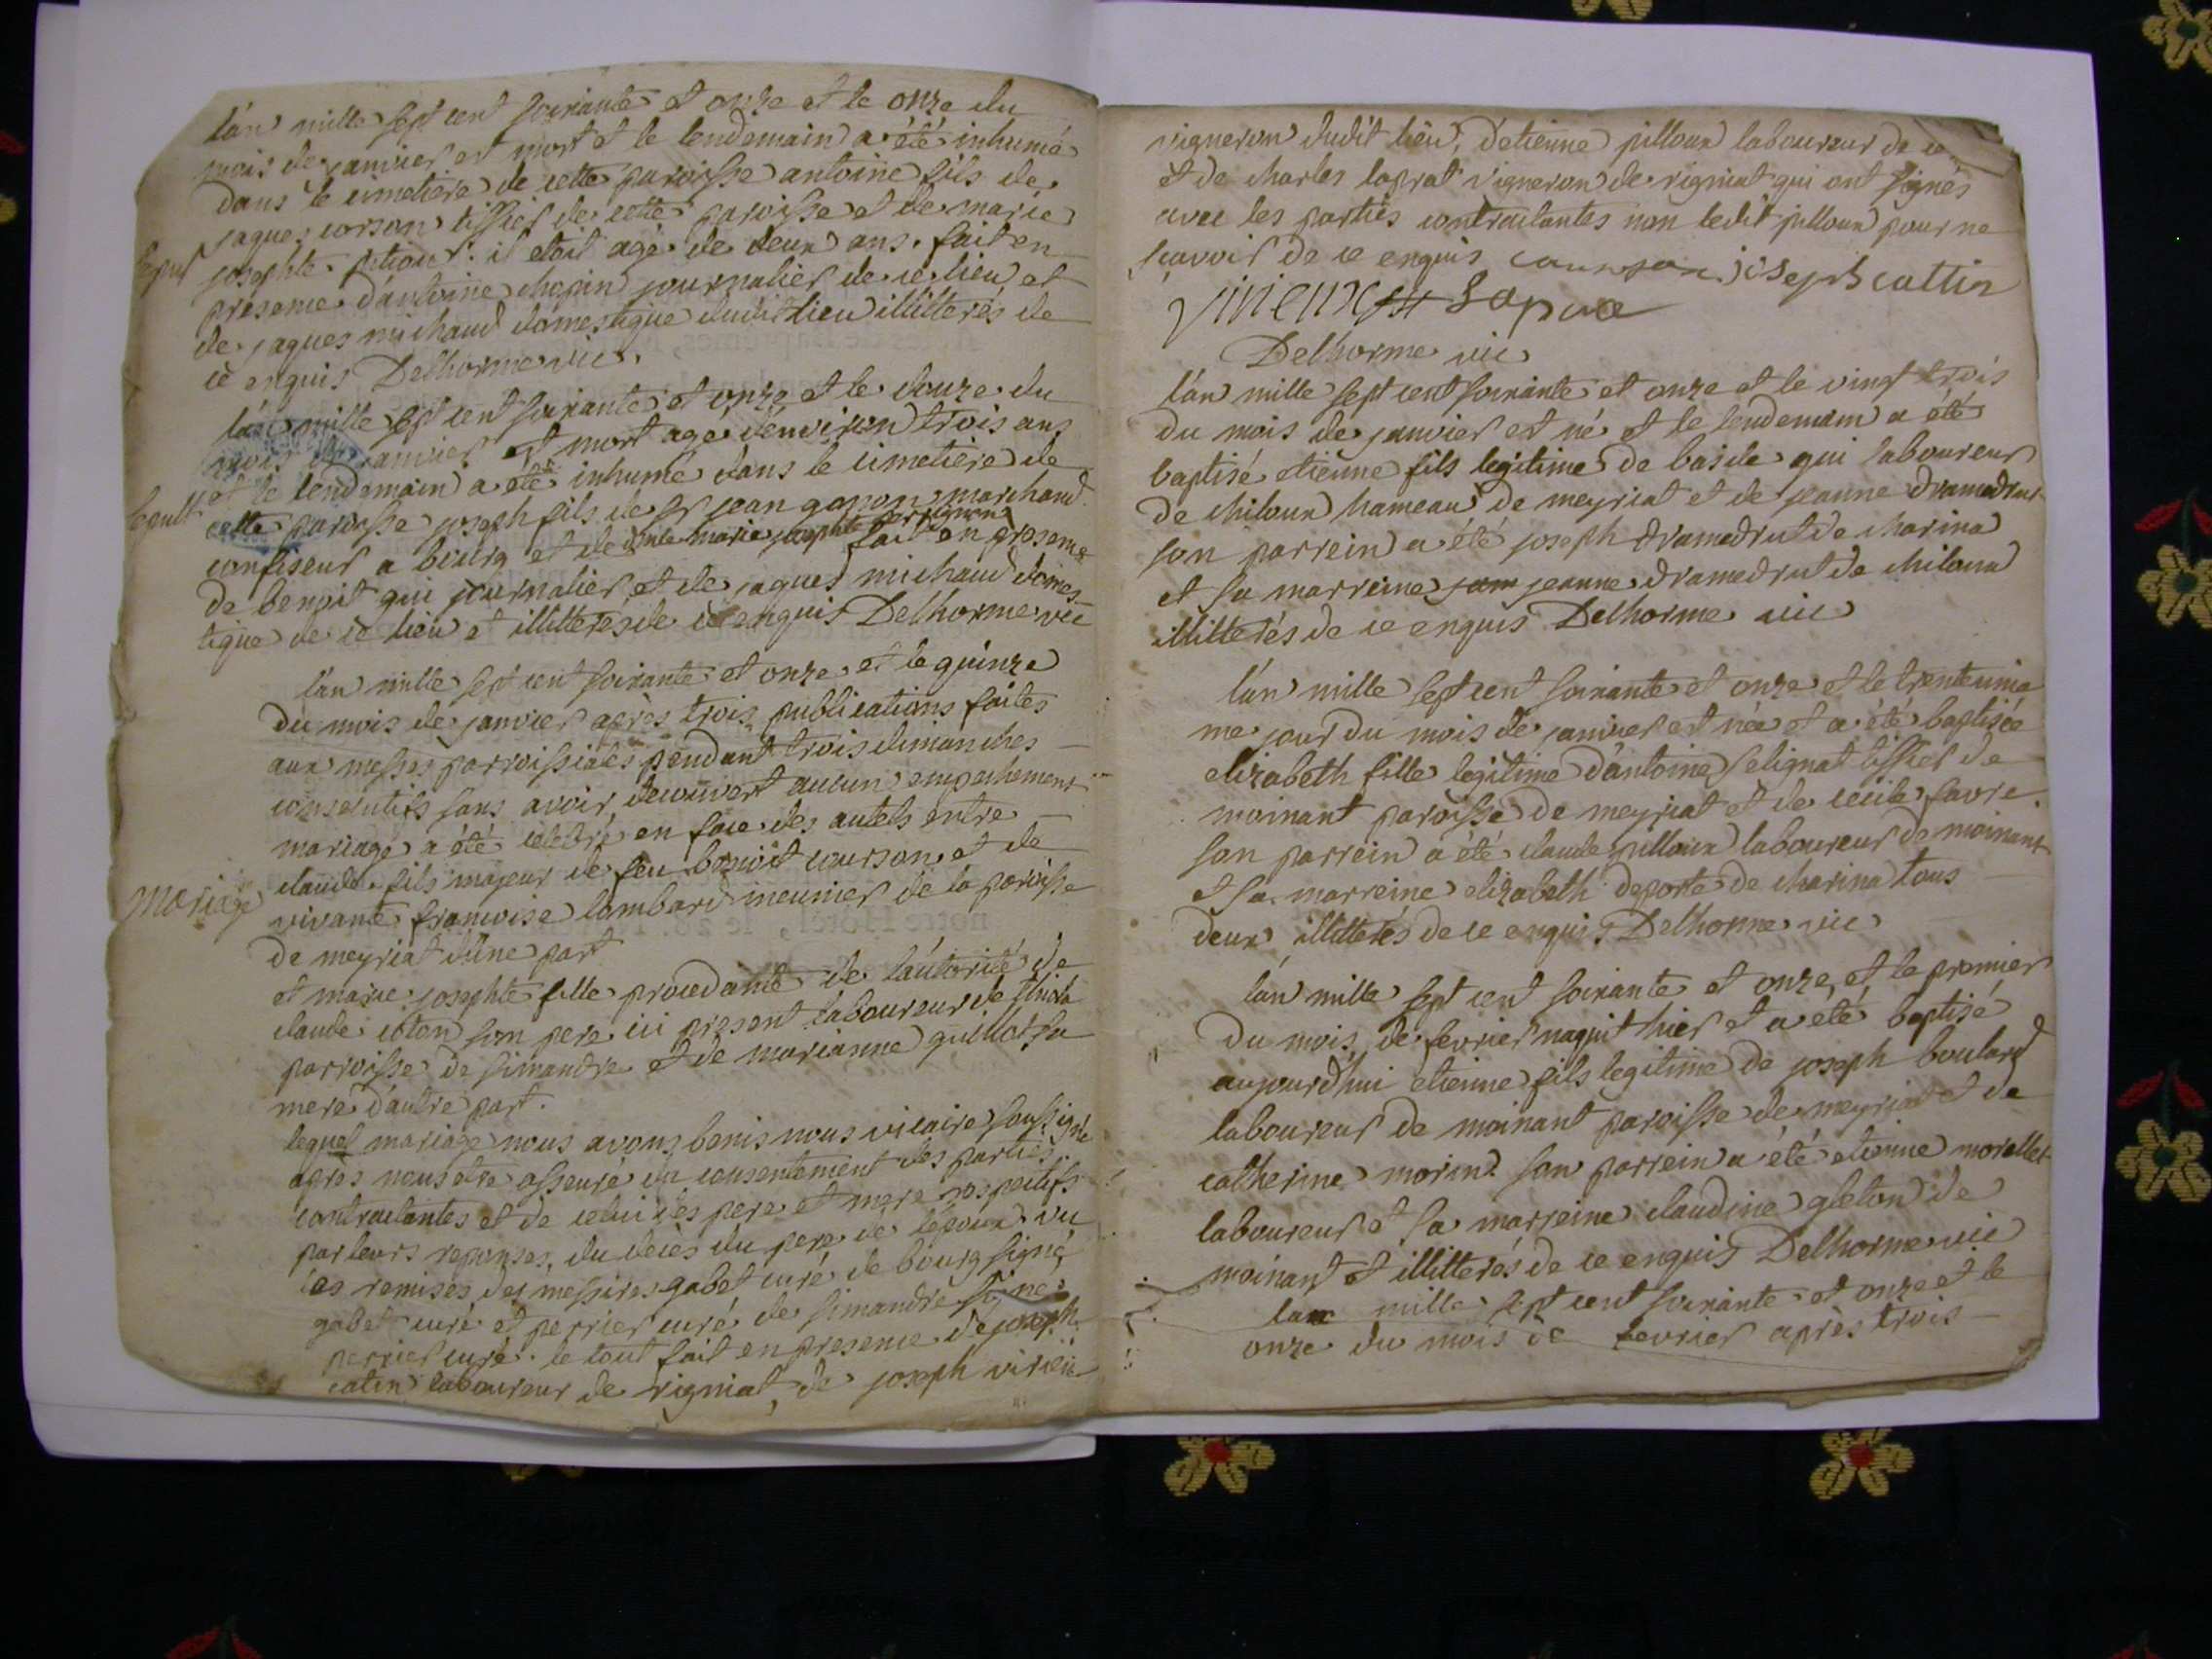 l'an mille sept cent soixante et onze et le onze du
mois de janvier est mort et le lendemain a été inhumé
dans le cimetiere de cette paroisse antoine fils de
jaques corson tissier de cette paroisse et de marie
josephte il etoit agé de deux ans. fait en
presence d'antoine chapin journalier de ce lieu et
de jaques michaud domestique dudit lieu illitterés de
ce enquis Delhorme vic
l'an mille sept cent soixante et onze et le douze du
mois de janvier est mort agé d'environ trois ans
et le lendemain a été inhumé dans le cimetiere de
Sepult
cette paroisse joseph fils de Sr jean gapon marchand
confiseur a bourg et de marie josephte fait en presence
de benoit qui journalier et de jaques michaud domes
tique de ce lieu et illitterés de ce enquis Delhorme vic
l'an mille sept cent soixante et onze et le quinze
du mois de janvier après trois publications faites
aux messes parroissiales pendant trois dimanches
consecutifs sans avoir decouvert aucun empechement
mariage a été celebré en face des autels entre
claude fils majeur de feu benoit courson et de
Mariage
vivante francoise lombard meunier de la paroisse
de meyriat d'une part
et marie josephte fille procedante de l'autorité de
claude coten son pere ici present laboureur de
parroisse de simandre et de marianne guillot sa
mere d'autre part.
lequel mariage nous avons benis nous vicaire soussigné
après nous etre asseuré du consentement des parties
contractantes et de celui des pere et mere respectifs
par leurs reponses, du decès du pere de l'epoux vu
les remises des messires gabet curé de bourg signé
gabet curé et perrier curé de simandre signé
perrier curé. le tout fait en presence de joseph
catin laboureur de rigniat, de joseph
vigneron dudit lieu, d'etienne pilloux laboureur de ce
et de charles laprat vigneron de rigniat qui ont signés
avec les parties contractantes non ledit pilloux pour ne
scavoir de ce enquis courson joseph cattin
Delhorme vic
l'an mille sept cent soixante et onze et le vingt trois
du mois de janvier est né et le lendemain a été
baptisé etienne fils legitime de basile qui laboureur
de chiloux hameau de meyriat et de jeanne dramedrut
son parrein a été joseph dramedrut de charina
et sa marreine jeanne dramedrut de chiloux
illitterés de ce enquis Delhorme vic
l'an mille sept cent soixante et onze et le trente unie
me jour du mois de janvier est née et a été baptisée
elizabeth fille legitime d'antoine selignat tissier de
moinant paroisse de meyriat et de cecile favre
son parrein a été claude pilloux laboureur de moinant
et sa marreine elizabeth deporte de charina tous
deux illitterés de ce enquis Delhorme vic
l'an mille sept cent soixante et onze, et le premier
du mois de fevrier naquit hier et a été baptisé
aujourd'hui etienne fils legitime de joseph boulard
laboureur de moinant paroisse de meyriat et de
catherine morin. son parrein a été etienne morellet
laboureur et sa marreine claudine gleton de
moinant et illitterés de ce enquis Delhorme vic
lan mille sept cent soixante et onze et le
onze du mois de fevrier après trois